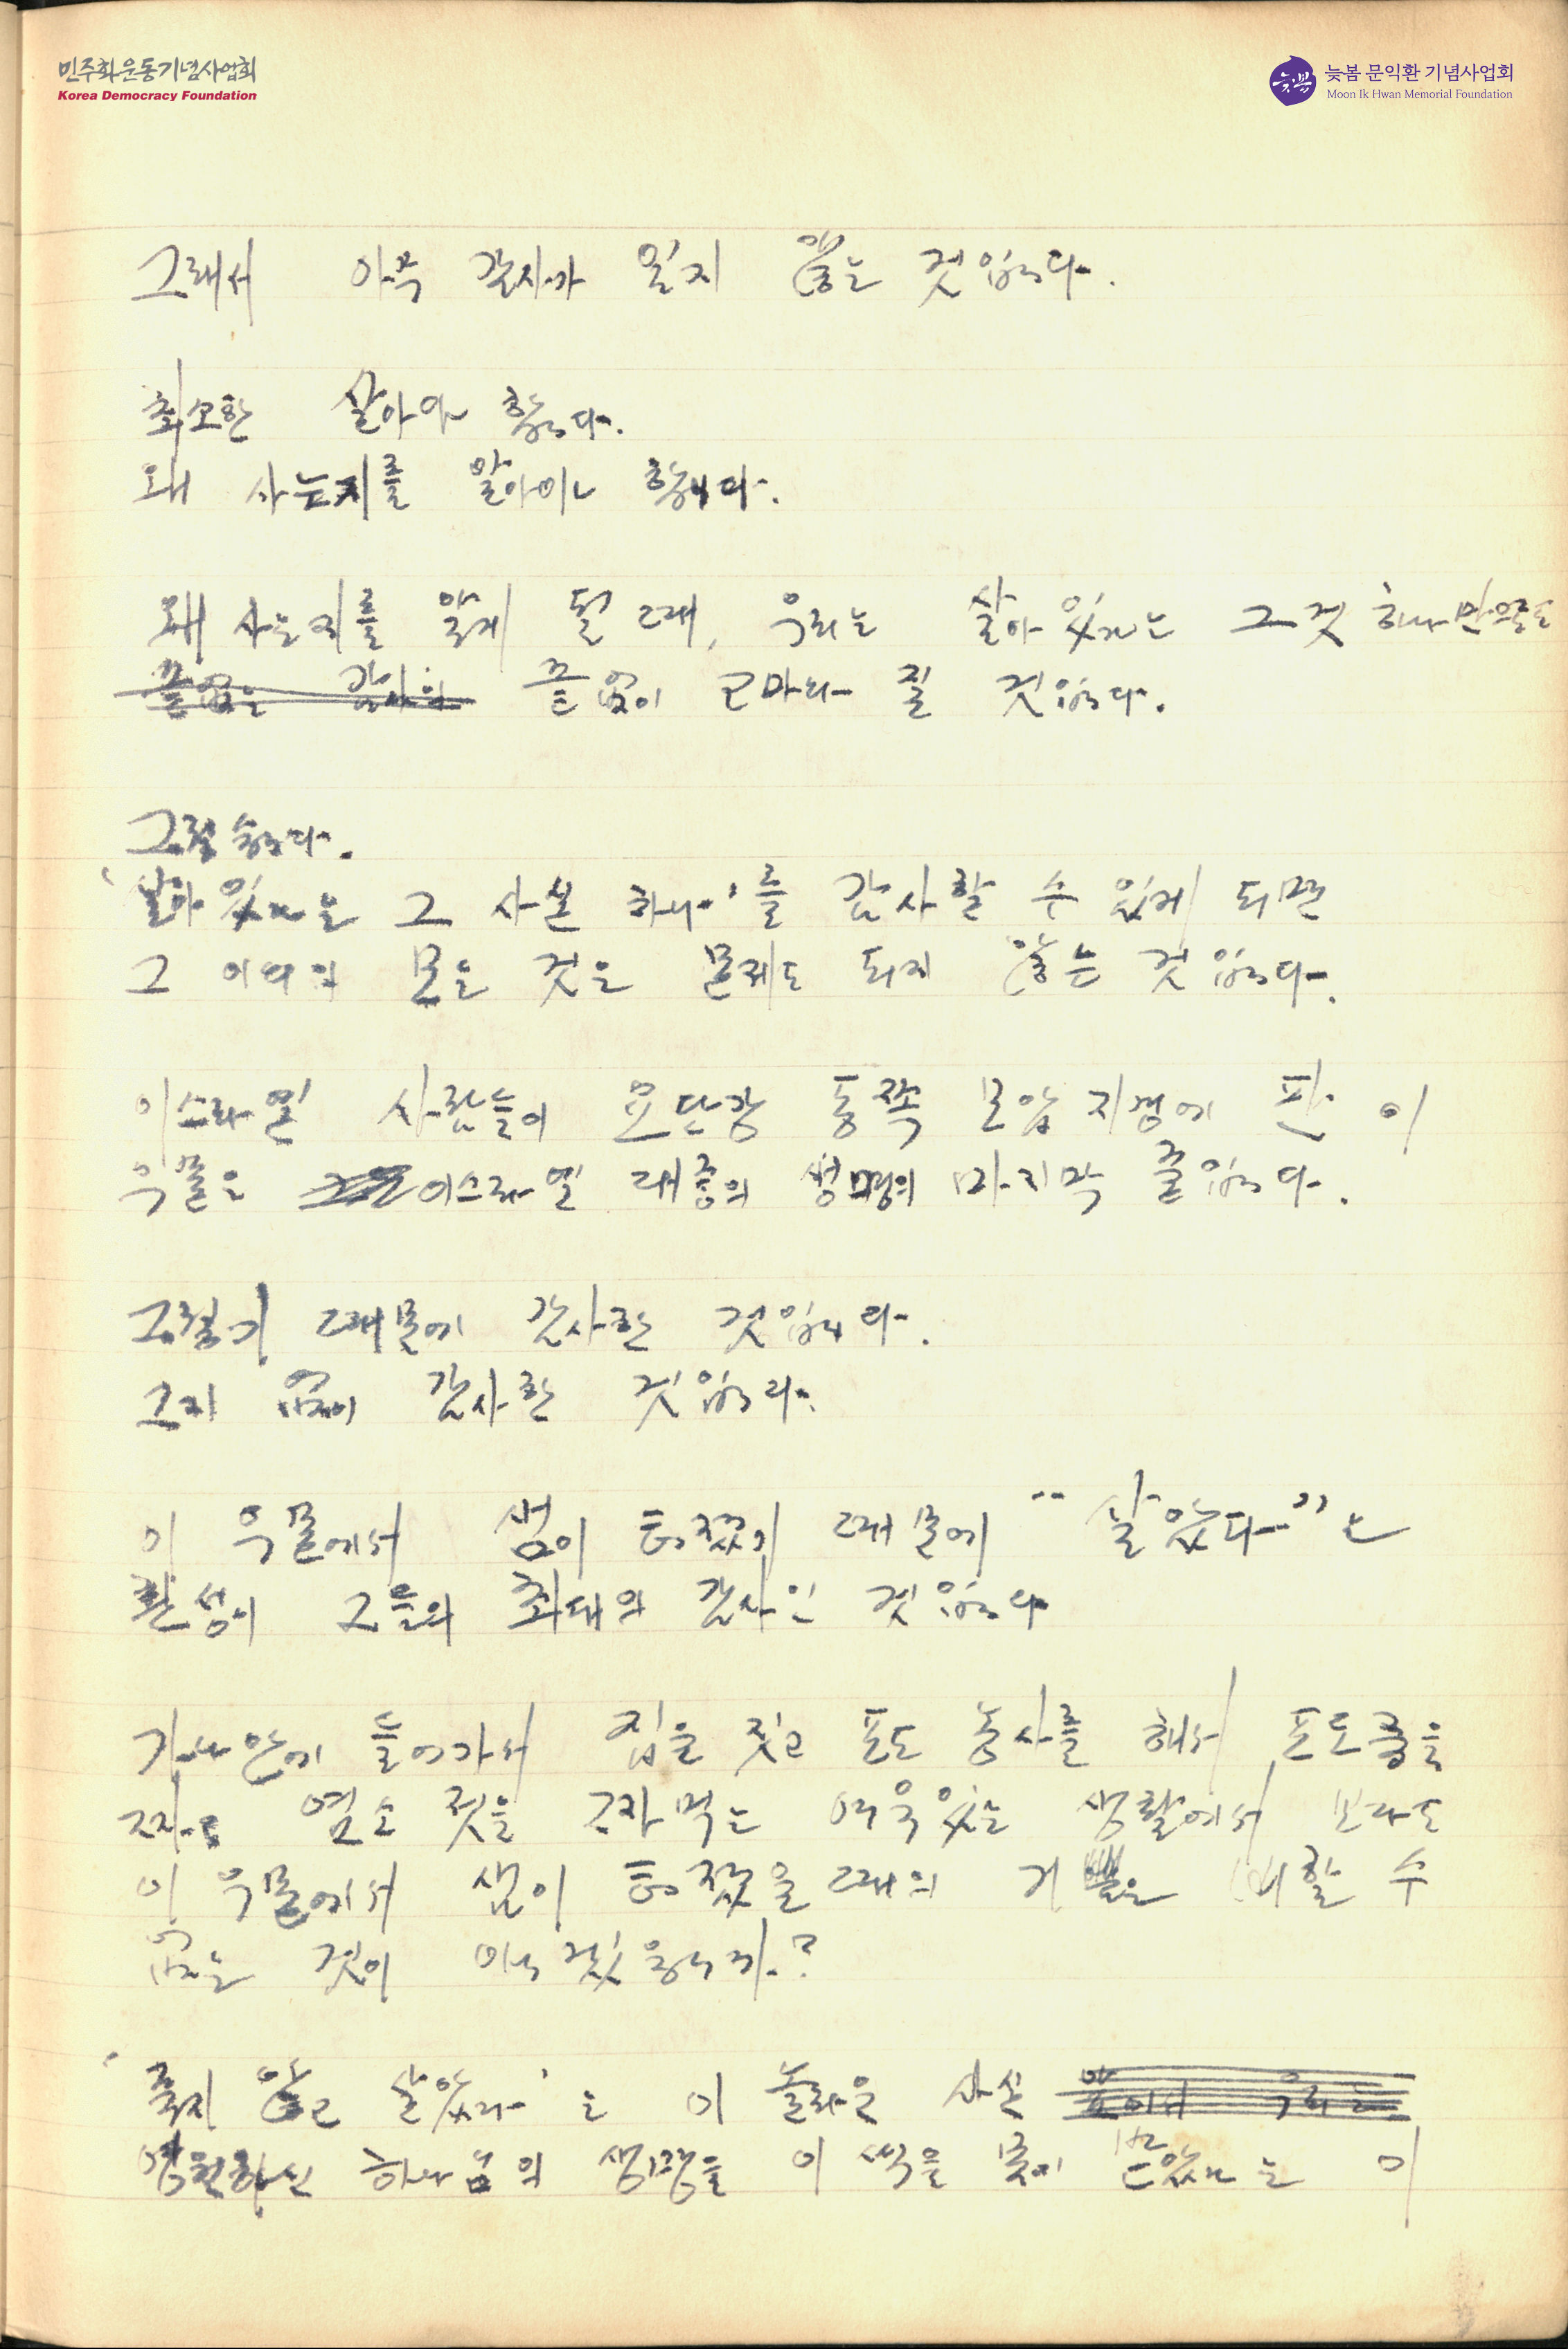 민주화운동기념사업회
Korea Democracy Foundation
늦봄 문익환 기념사업회
Moon Ik Hwan Memorial Foundation
그래서 아무 감사가 일지 않는 것입니다.
최소한 살아야 합니다.
왜 사는지를 알아야 합니다.
왜 사는지를 알게 될 때, 우리는 살아 있다는 그것 하나만으로도
끝없는 감사의 끝없이 고마워 질 것입니다.
그렇습니다.
'살아 있다는 그 사실 하나'를 감사할 수 있게 되면
그 이외의 모든 것은 문제도 되지 않는 것입니다.
이스라엘 사람들이 요단강 동쪽 모압 지경에 판 이
우물은 이스라엘 대중의 생명의 마지막 줄입니다.
그렇기 때문에 감사한 것입니다.
그지 없이 감사한 것입니다.
이 우물에서 샘이 터졌기 때문에 "살았다"는
환성이 그들의 최대의 감사인 것입니다
가나안에 들어가서 집을 짓고 포도 농사를 해서 포도즙을
짜고 염소 젖을 짜 먹는 여유있는 생활에서 보다도
이 우물에서 샘이 터졌을 때의 기쁨은 비할 수
없는 것이 아니겠습니까?
'죽지 않고 살았다'는 이 놀라운 사실 우리는
영원하신 하나님의 생명을 이 벅을 몸에 받았다는 이